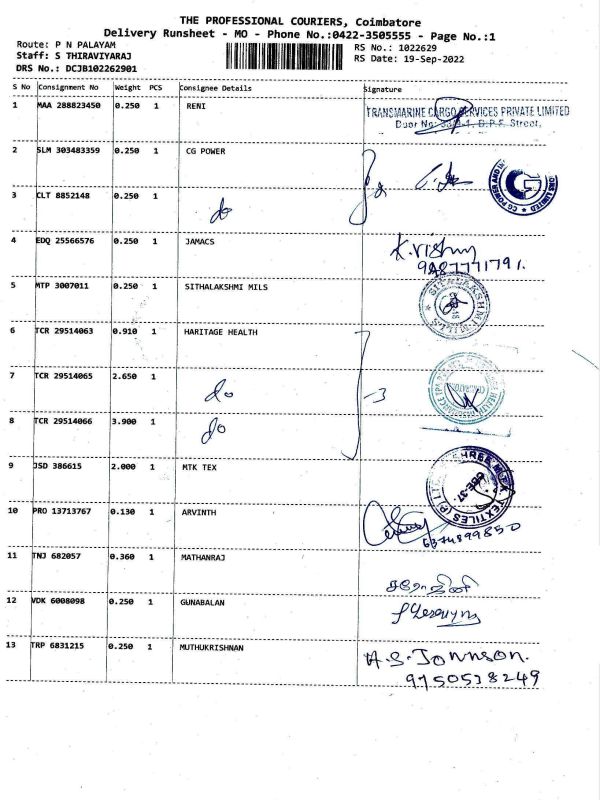 THE PROFESSIONAL COURIERS, Coimbatore
Delivery Runsheet - MO - Phone No.:0422-3505555 - Page No.:1
Route: P N PALAYAM RS No.: 1022629
Staff: S THIRAVIYARAJ RS Date: 19-Sep-2022
DRS No.: DCJB102262901
S No Consignment No Weight PCS Consignee Details Signature
1 MAA 288823450 0.250 1 RENI
TRANSMARINE CARGO SERVICES PRIVATE LIMITED
Door No: D.P.F. Street,
2 SLM 303483359 0.250 1 CG POWER
3 CLT 8852148 0.250 1 do
4 EDQ 25566576 0.250 1 JAMACS
K.vishnu
9487771791.
5 MTP 3007011 0.250 1 SITHALAKSHMI MILS
6 TCR 29514063 0.910 1 HARITAGE HEALTH
7 TCR 29514065 2.650 1 do -3
8 TCR 29514066 3.900 1 do
9 JSD 386615 2.000 1 MTK TEX
10 PRO 13713767 0.130 1 ARVINTH
6374899850
11 TNJ 682057 0.360 1 MATHANRAJ
சரோஜினி
12 VDK 6008098 0.250 1 GUNABALAN
13 TRP 6831215 0.250 1 MUTHUKRISHNAN
A.S.Johnson.
9750538249